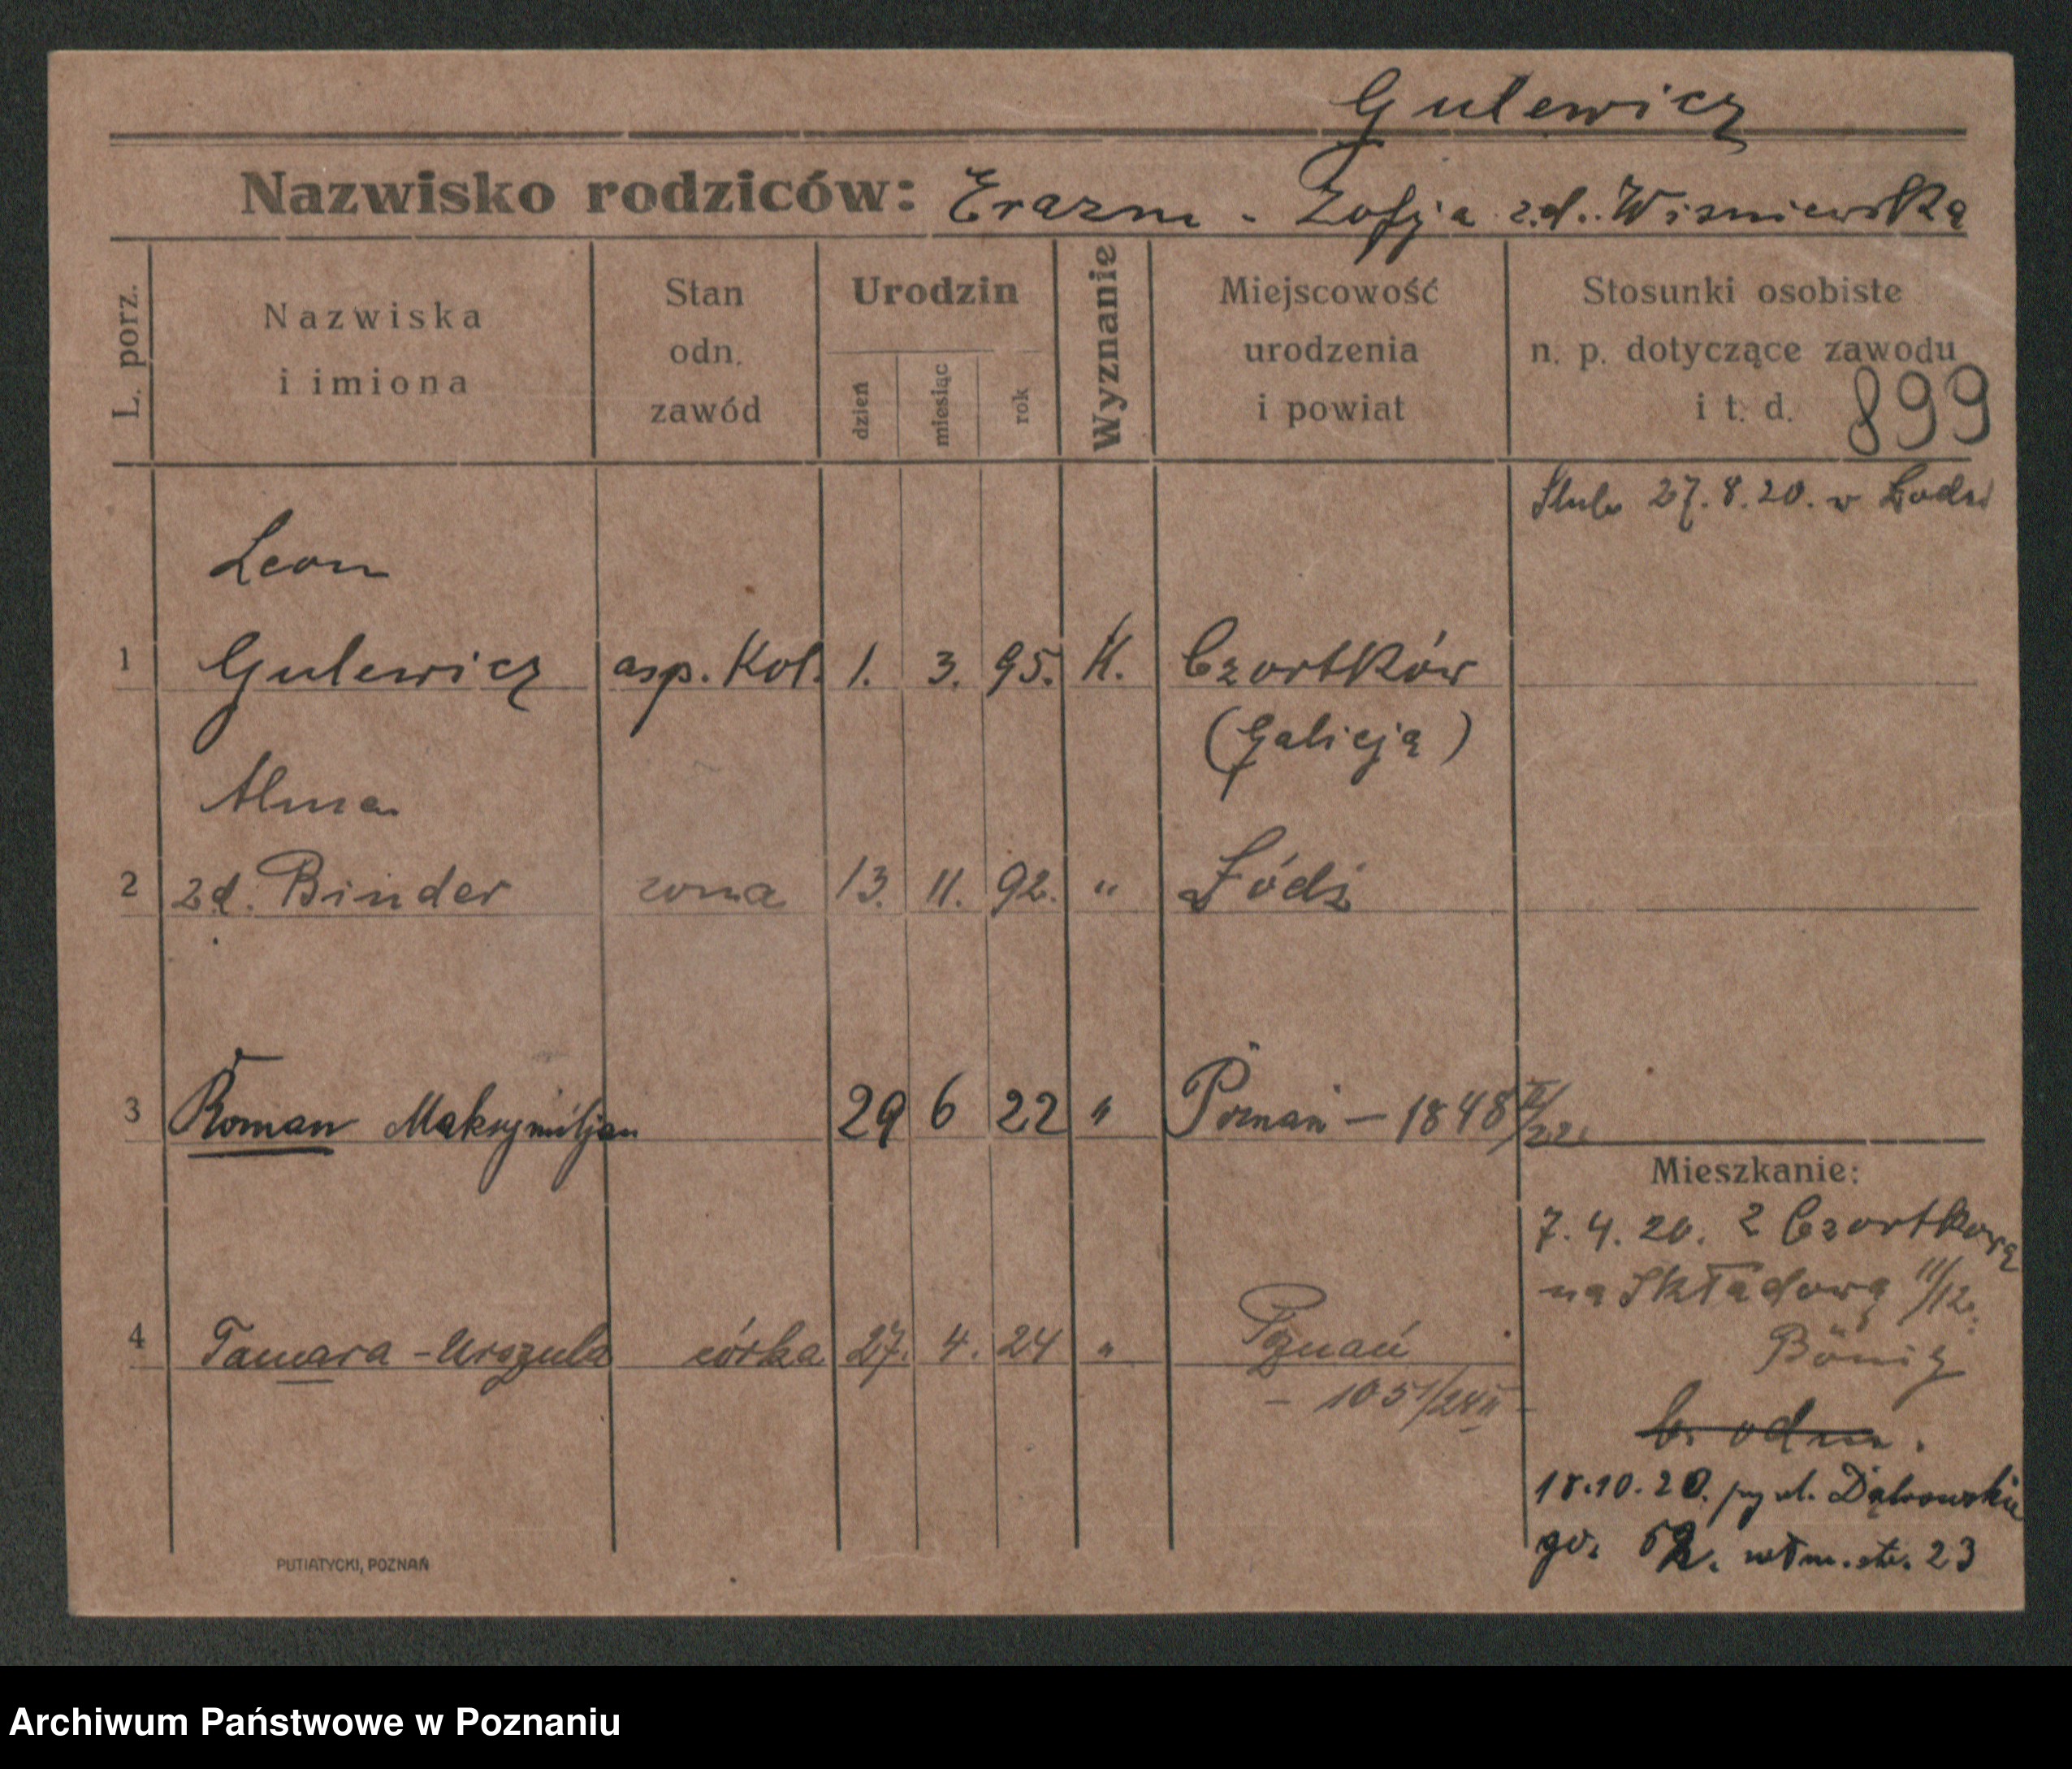 Gulewicz
Nazwisko rodziców: Erazm - Zofja z.d. Wisniewska
L. porz.
Nazwiska i imiona
Stan odn. zawód
Urodzin
dzień
miesiąc
rok
Wyznanie
Miejscowość urodzenia i powiat
Stosunki osobiste n. p. dotyczące zawodu i t. d.
899
Slub 27.8.20. w Łodzi
Leon
1 Gulewicz asp. Kol. 1. 3. 95. K. Czortków
(Galicja)
Alma
2 z.d. Binder zona 13. 11. 92. " Łódź
3 Roman Maksymiljan 29 6 22 " Poznań — 1848 II/22.
4 Tamara - Urszula córka 27. 4. 24 " Poznań
- 1051/24 II -
Mieszkanie:
7. 4. 20. z Czortkowa
na Składową 11/12.
Bönig
b. odm.
18.10.20. przy ul. Dąbrowskie
go. 52. str. 23
PUTIATYCKI, POZNAŃ
Archiwum Państwowe w Poznaniu